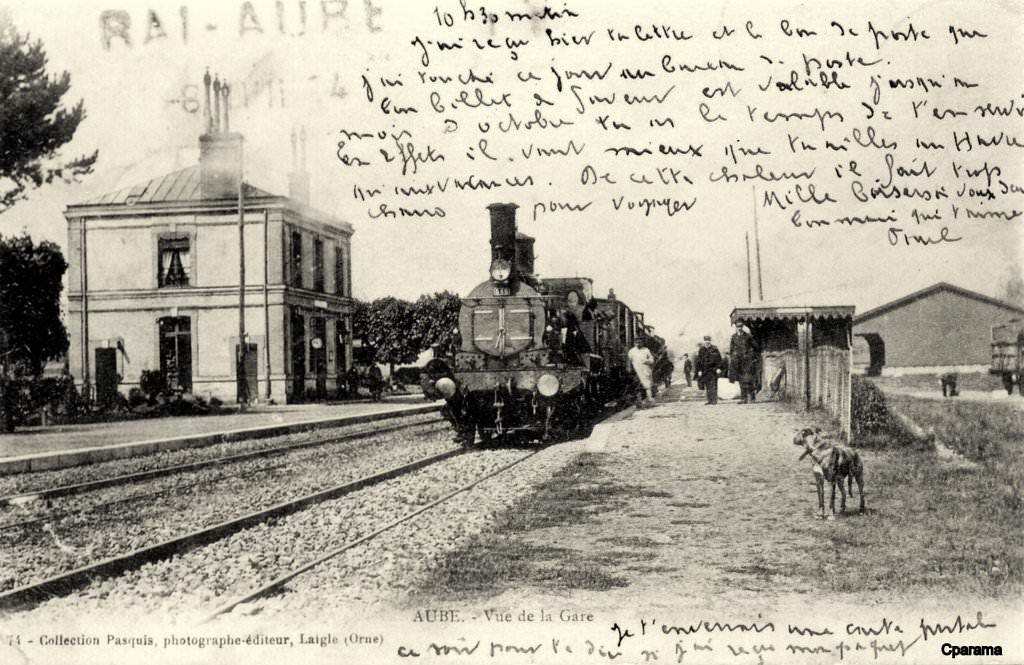 RAI-AUBE
10h30 matin
j'ai reçu hier ta lettre et le bon de poste que
j'ai touché ce jour au bureau de poste.
Ton billet de faveur est valable jusqu'au
mois d'octobre tu as le temps de t'en servir
En effets il vaut mieux que tu ailles au Havre
qu'aux vacances. De cette chaleur il fait trop
chaud pour voyager Mille baisers à vous deux
ton mari qui t'aime
AUBE. - Vue de la Gare
74 - Collection Pasquis, photographe-éditeur, Laigle (Orne)
Je t'enverrais une carte postale
ce soir pour te dire si j'ai reçu mon paquet
Cparama